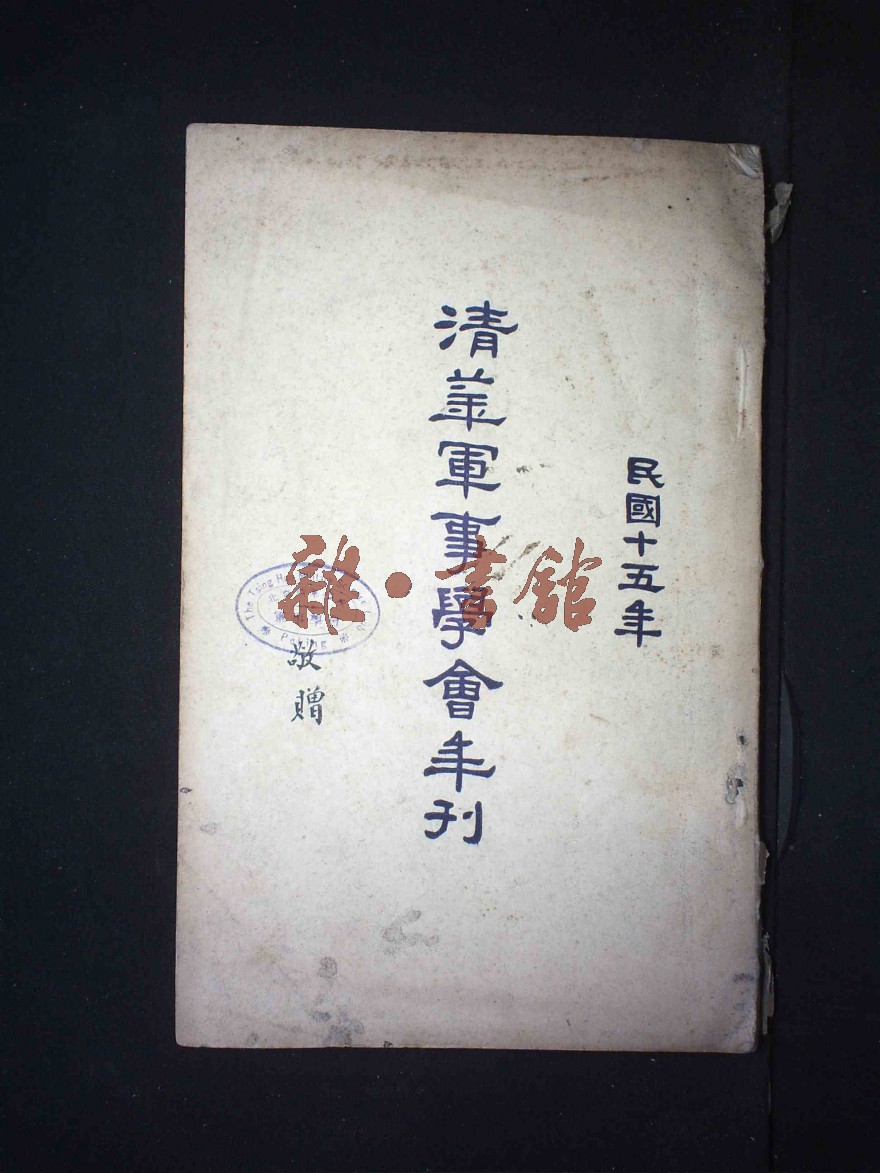 民國十五年
清華軍事學會年刊
雜·書館
敬贈
The Tsing H
Peking